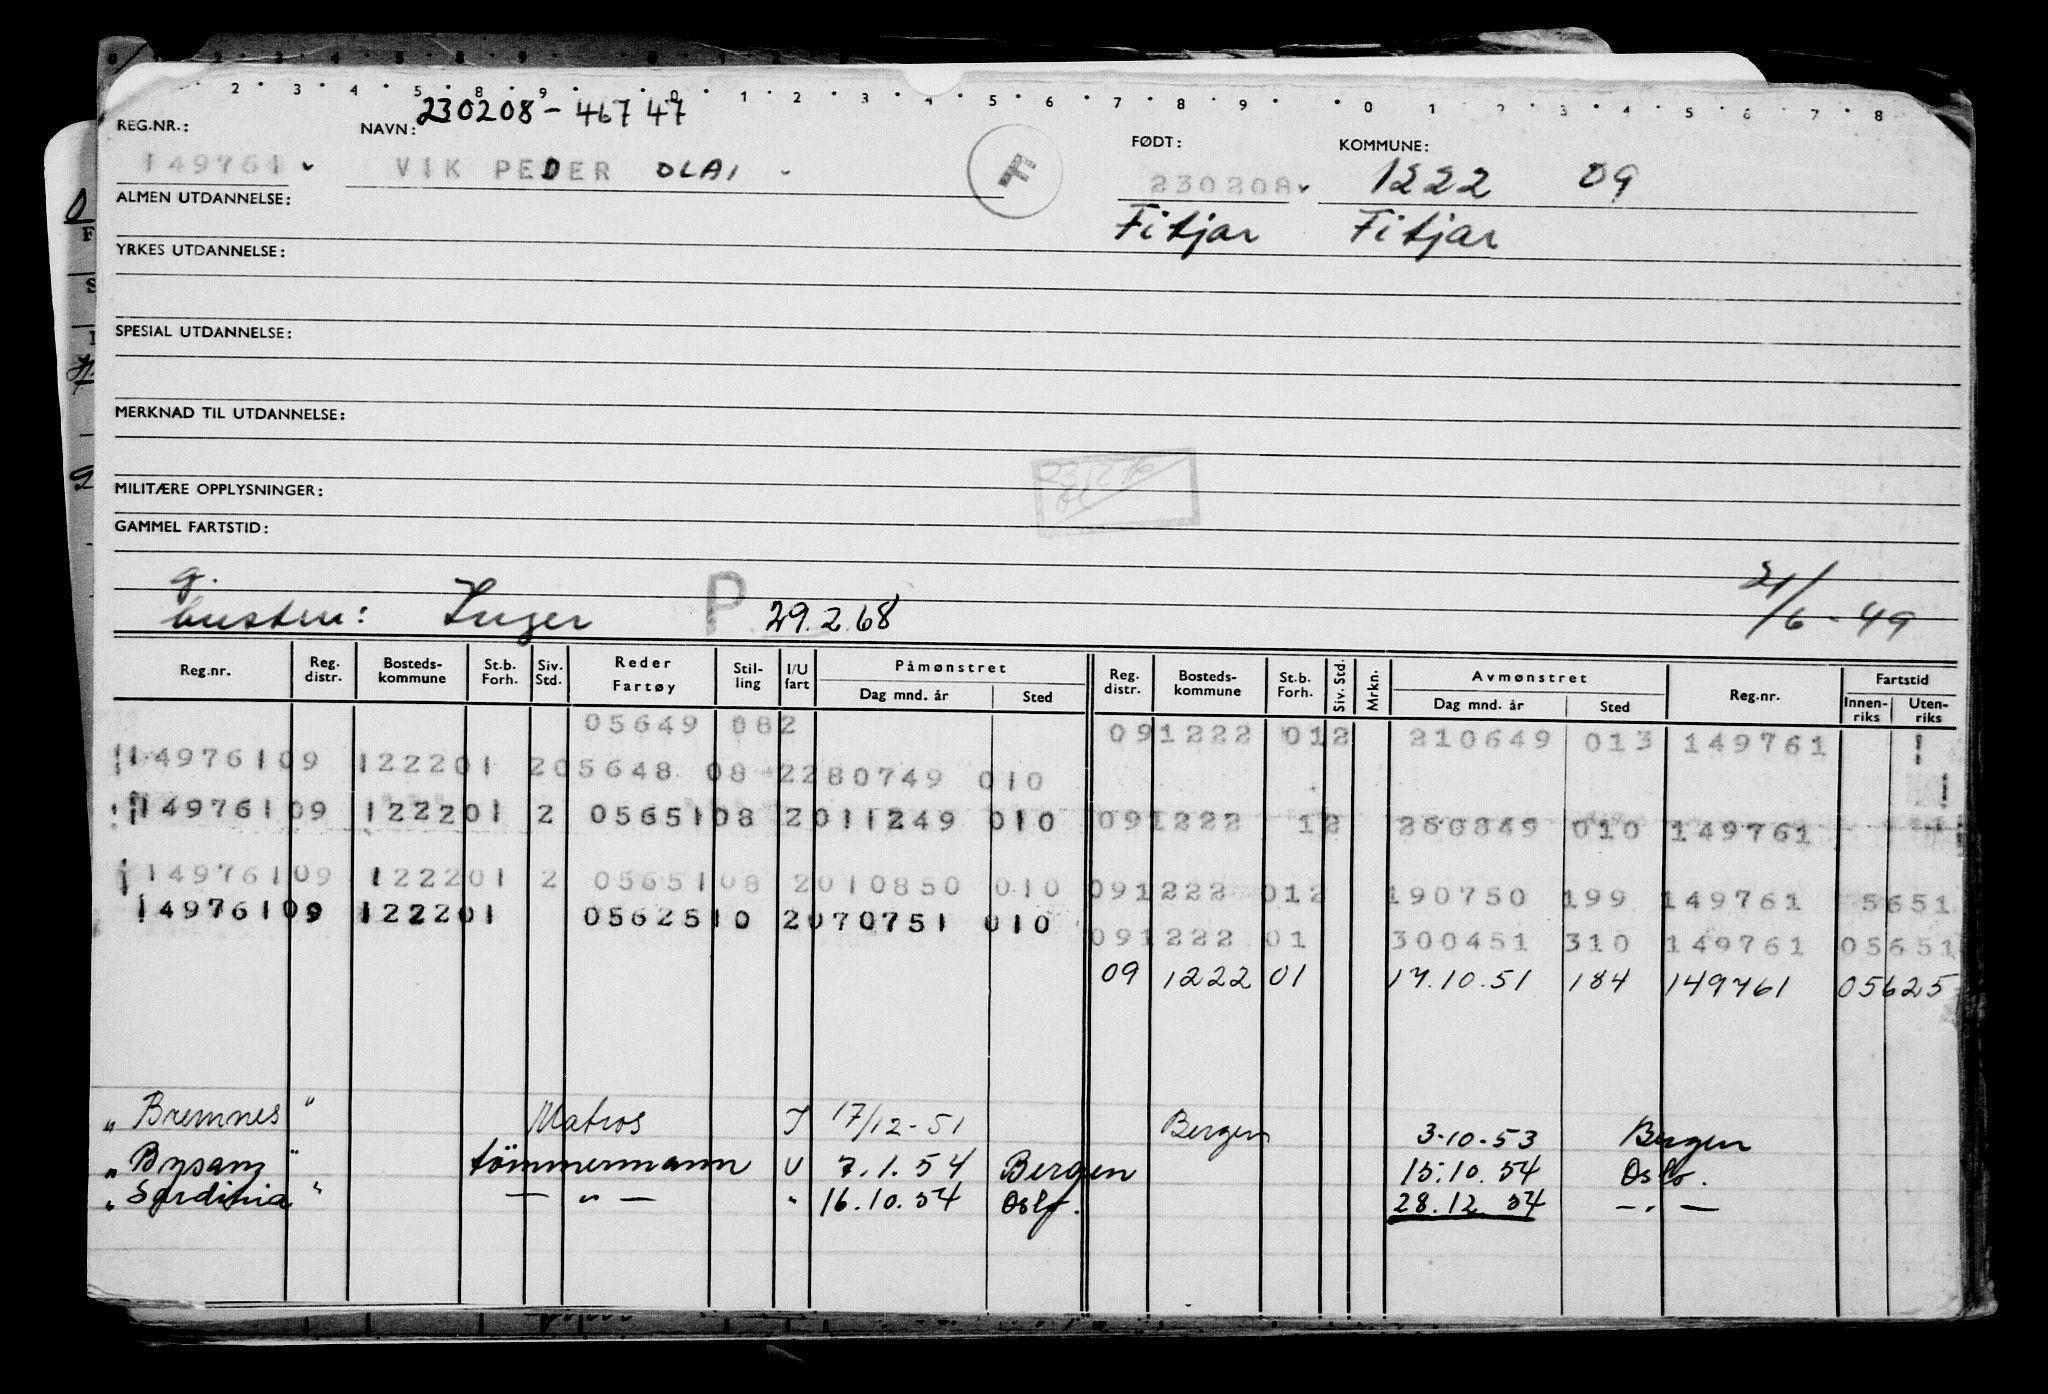 230208-46747
REG.NR.: NAVN: FØDT: KOMMUNE:
149761 VIK PEDER OLAI F 230208 1222 09
ALMEN UTDANNELSE: Fitjar Fitjar
YRKES UTDANNELSE:
SPESIAL UTDANNELSE:
MERKNAD TIL UTDANNELSE:
MILITÆRE OPPLYSNINGER:
GAMMEL FARTSTID:
g.
hustru: Inger P 29.2.68 21/6-49
Reg.nr. Reg. distr. Bosteds-kommune St.b. Forh. Siv. Std. Reder Fartøy Stil-ling I/U fart Påmønstret Dag mnd. år Sted Reg. distr. Bosteds-kommune St.b. Forh. Siv. Std. Mrkn. Avmønstret Dag mnd. år Sted Reg.nr. Fartstid Innen-riks Uten-riks
05649 082 091222 012 210649 013 149761
14976109 122201 205648 08 2280749 010
14976109 122201 2 0565108 2011249 010 091222 12 260849 010 149761
14976109 122201 2 0565108 2010850 010 091222 012 190750 199 149761 5651
14976109 122201 0562510 2070751 010 091222 01 300451 310 149761 05651
09 1222 01 17.10.51 184 149761 05625
„ Bremnes " Matros I 17/12-51 Bergen 3-10-53 Bergen
„ Bysanz " tömmermann U 7.1.54 Bergen 15.10.54 Oslo.
„ Sardinia " — " — " 16.10.54 Oslo. 28.12.54 — " —